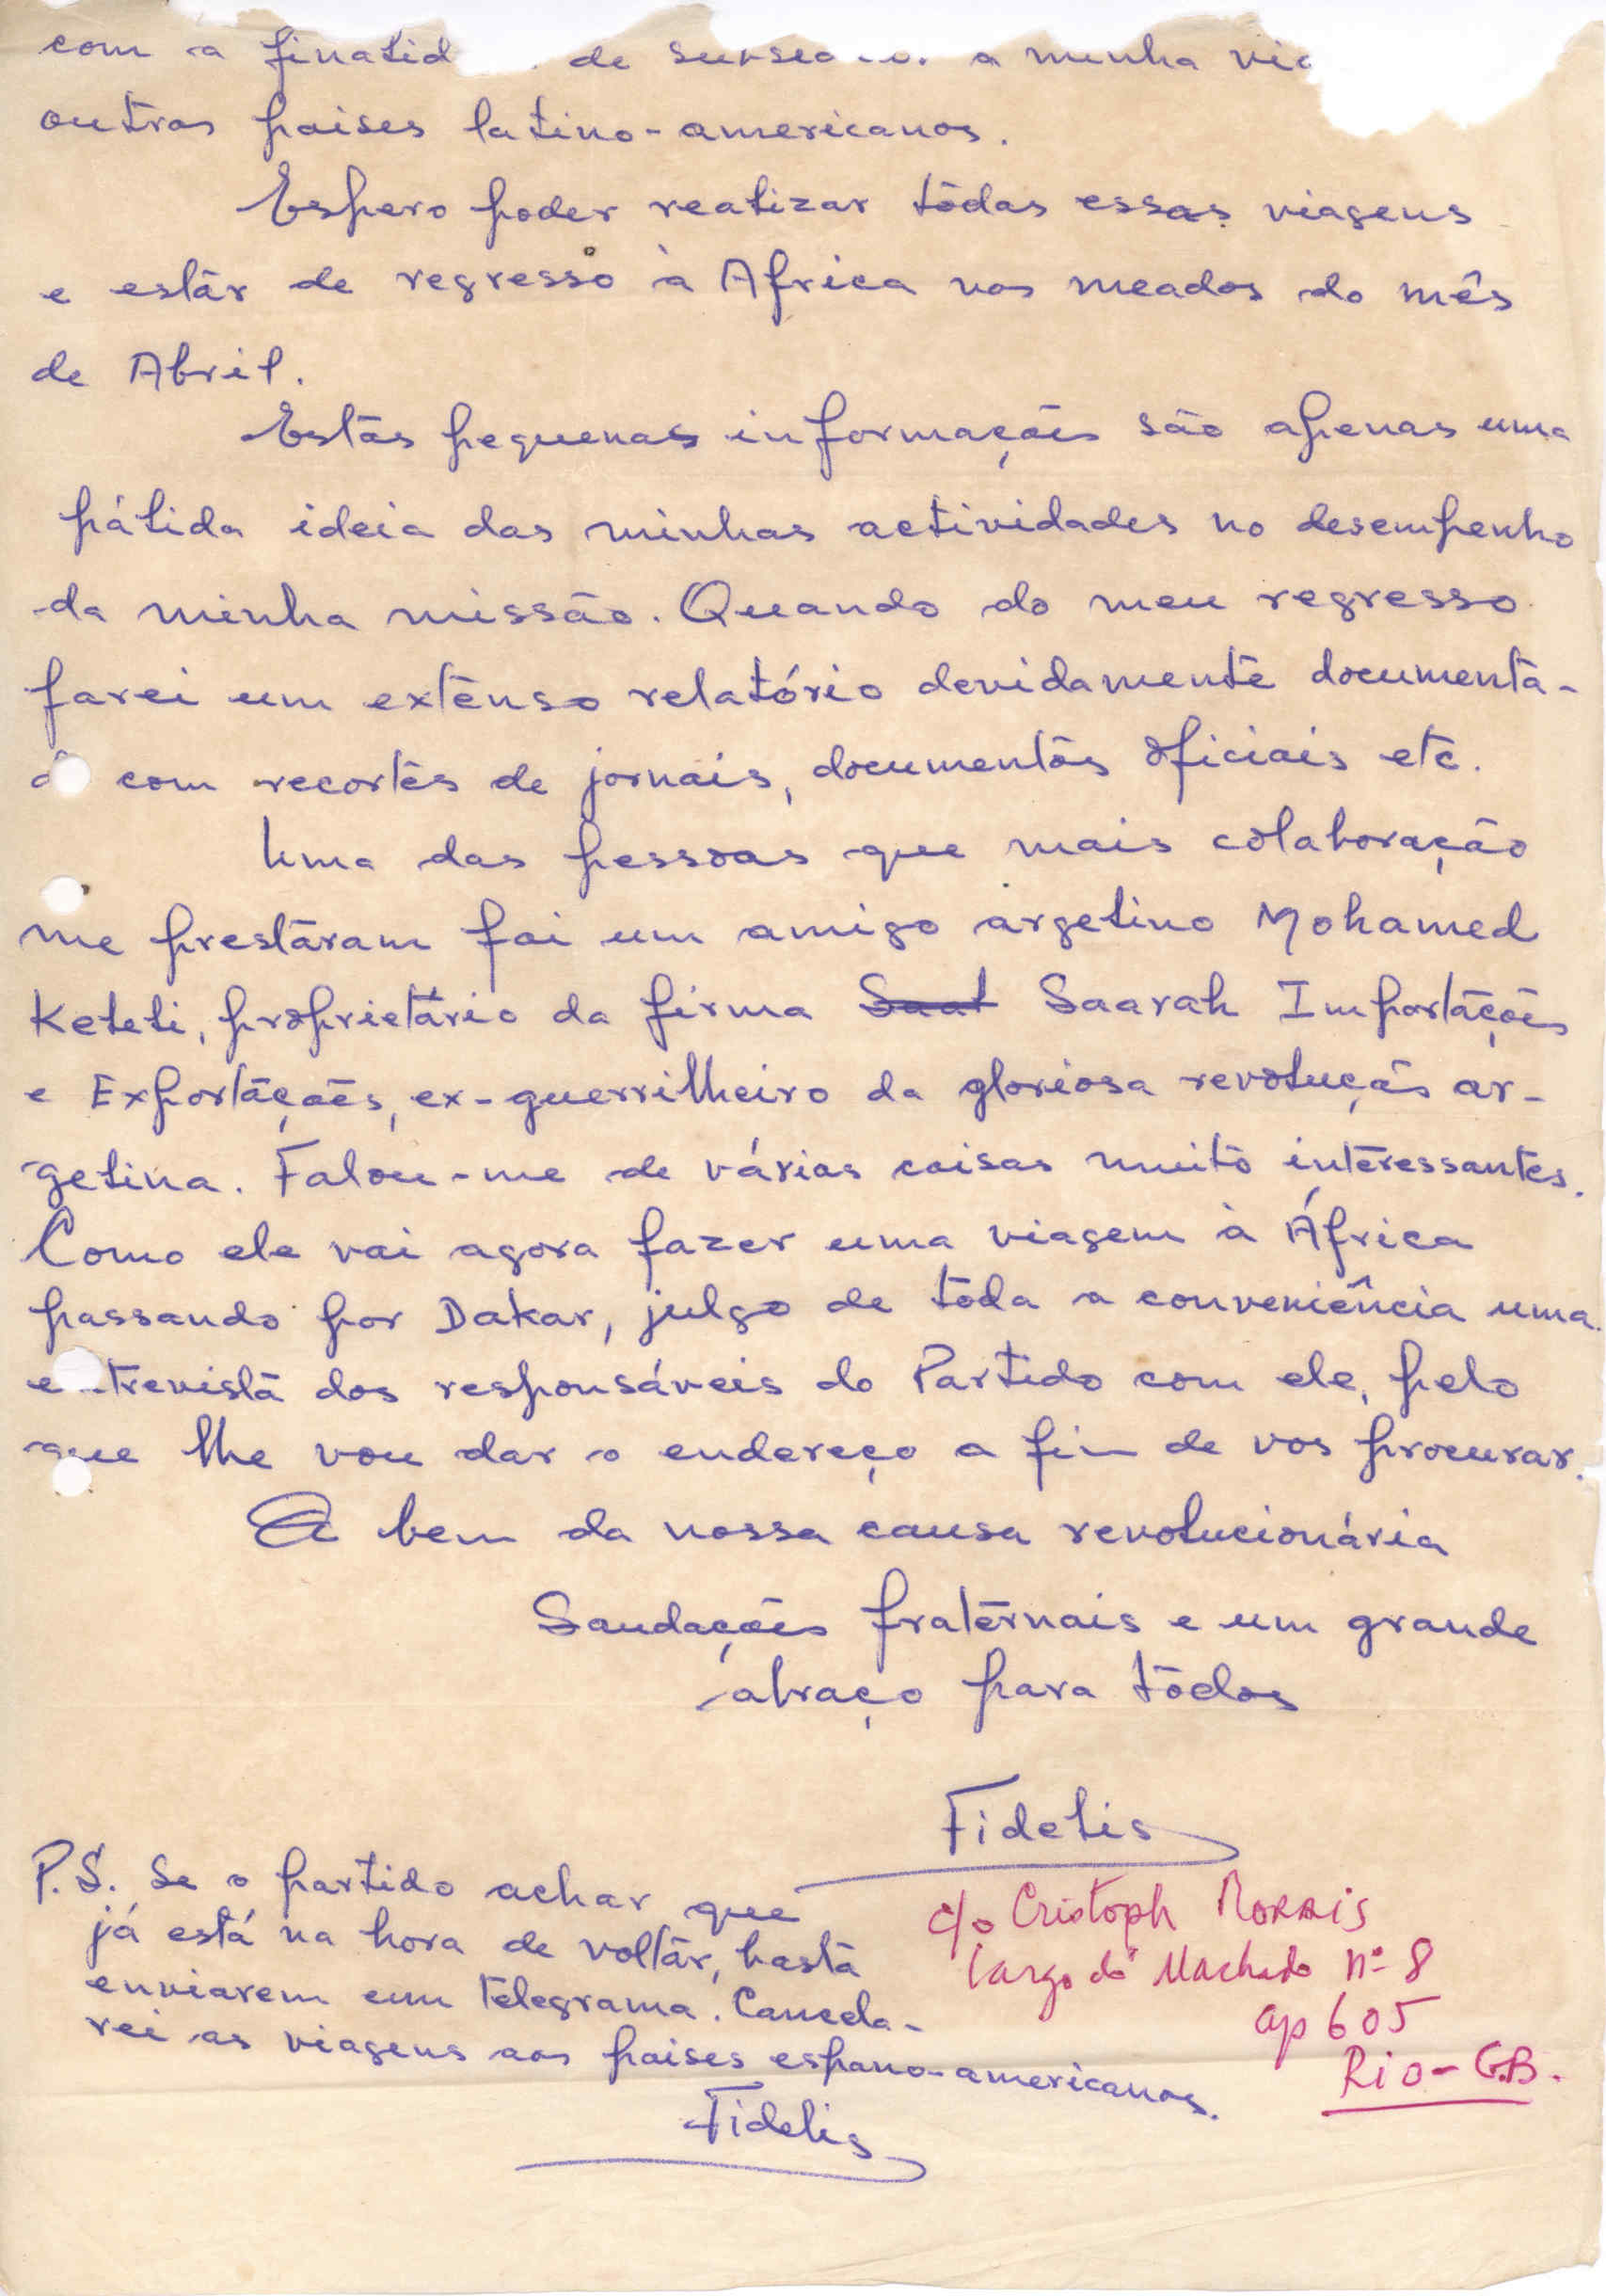 com a finalid de a minha
outros paises latino-americanos.
Espero poder realizar tôdas essas viagens
e estar de regresso à Africa nos meados do mês
de Abril.
Estas pequenas informações são apenas uma
pálida ideia das minhas actividades no desempenho
da minha missão. Quando do meu regresso
farei um extenso relatório devidamente documenta-
o com recortes de jornais, documentos oficiais etc.
Uma das pessoas que mais colaboração
me prestaram foi um amigo argelino Mohamed
Keleli, proprietário da firma Saal Saarah Importações
e Exportações, ex-guerrilheiro da gloriosa revolução ar-
gelina. Falou-me de várias coisas muito interessantes.
Como ele vai agora fazer uma viagem à África
passando por Dakar, julgo de tôda a conveniência uma
e trevista dos responsáveis do Partido com ele, pelo
que lhe vou dar o endereço a fim de vos procurar.
A bem da nossa causa revolucionária
Saudações fraternais e um grande
abraço para todos
Fidelis
P.S. Se o partido achar que
já está na hora de voltar, basta
enviarem um telegrama. Cancela-
rei as viagens aos paises espano-americanos.
Fidelis
c/o Cristoph MORAIS
Largo do Machado nº 8
ap 605
Rio-GB.